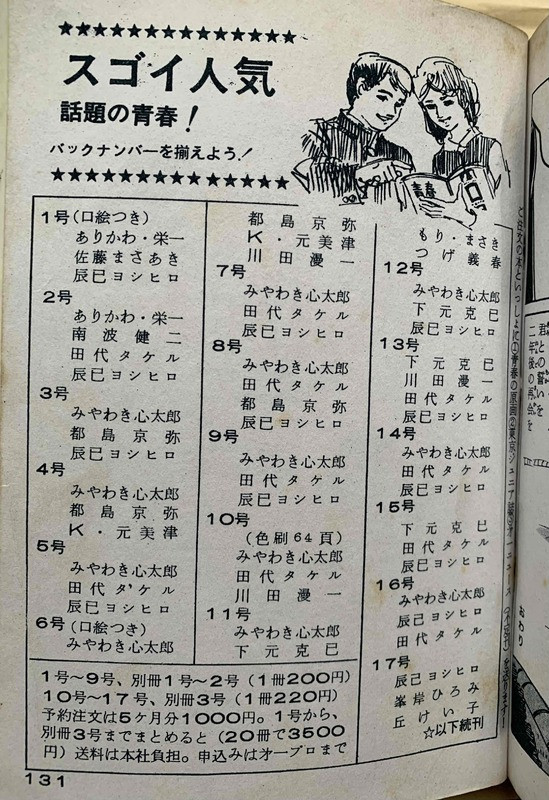 ★★★★★★★★★★★★★★★
スゴイ人気
話題の青春！
バックナンバーを揃えよう！
★★★★★★★★★★★★★★★
青春
1号(口絵つき)
ありかわ・栄一
佐藤まさあき
辰巳ヨシヒロ
2号
ありかわ・栄一
南波健二
田代タケル
辰巳ヨシヒロ
3号
みやわき心太郎
都島京弥
辰巳ヨシヒロ
4号
みやわき心太郎
都島京弥
K・元美津
5号
みやわき心太郎
田代タケル
辰巳ヨシヒロ
6号(口絵つき)
みやわき心太郎
都島京弥
K・元美津
川田漫一
7号
みやわき心太郎
田代タケル
辰巳ヨシヒロ
8号
みやわき心太郎
田代タケル
都島京弥
辰巳ヨシヒロ
9号
みやわき心太郎
田代タケル
辰巳ヨシヒロ
10号
(色刷64頁)
みやわき心太郎
田代タケル
川田漫一
11号
みやわき心太郎
下元克巳
もり・まさき
つげ義春
12号
みやわき心太郎
下元克巳
辰巳ヨシヒロ
13号
下元克巳
川田漫一
田代タケル
辰巳ヨシヒロ
14号
みやわき心太郎
田代タケル
辰巳ヨシヒロ
15号
下元克巳
田代タケル
辰巳ヨシヒロ
16号
みやわき心太郎
辰己ヨシヒロ
田代タケル
17号
辰己ヨシヒロ
峯岸ひろみ
丘けい子
☆以下続刊
1号〜9号、別冊1号〜2号(1冊200円)
10号〜17号、別冊3号(1冊220円)
予約注文は5ケ月分1000円。1号から、
別冊3号までまとめると(20冊で3500
円)送料は本社負担。申込みはオープロまで
ご注文の本といっしょに①青春の原画②東京ジュニア
131
君との誓いを
二年後の再会を
おわり